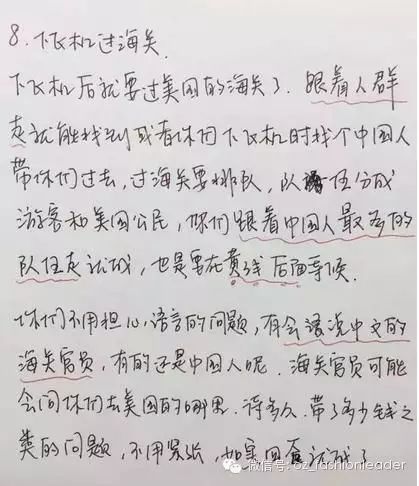 8.下飞机过海关.
下飞机后就要过美国的海关了.跟着人群
走就能找到或者你们下飞机时找个中国人
带你们过去,过海关要排队,队伍分成
游客和美国公民,你们跟着中国人最多的
队伍走就成,也是要在黄线后面等候.
你们不用担心语言的问题,有会话说中文的
海关官员,有的还是中国人呢.海关官员可能
会问你们去美国的哪里.待多久.带了多少钱之
类的问题,不用紧张,如实回答就成了
微信号: oz_fashionleader